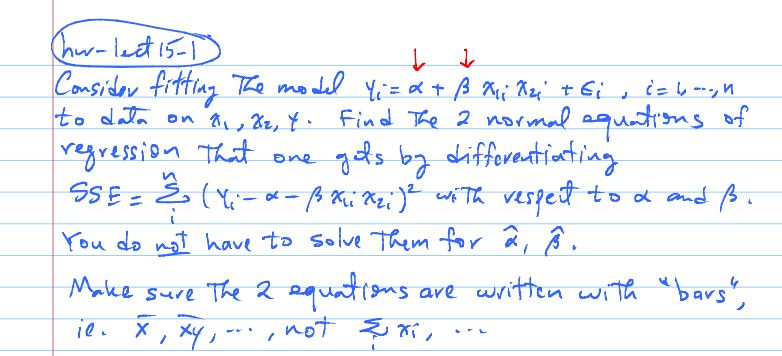 hw-lect 15-1
Consider fitting The model yᵢ = α + β x₁ᵢ x₂ᵢ + ϵᵢ , i=1, ---, n
to data on x₁, x₂, y. Find The 2 normal equations of
regression That one gets by differentiating
SSE = Σᵢⁿ (yᵢ - α - β x₁ᵢ x₂ᵢ)² with respect to α and β.
You do not have to solve Them for α̂, β̂.
Make sure The 2 equations are written with "bars",
ie. x̅, x̅y̅, ... , not Σᵢ xᵢ, ...